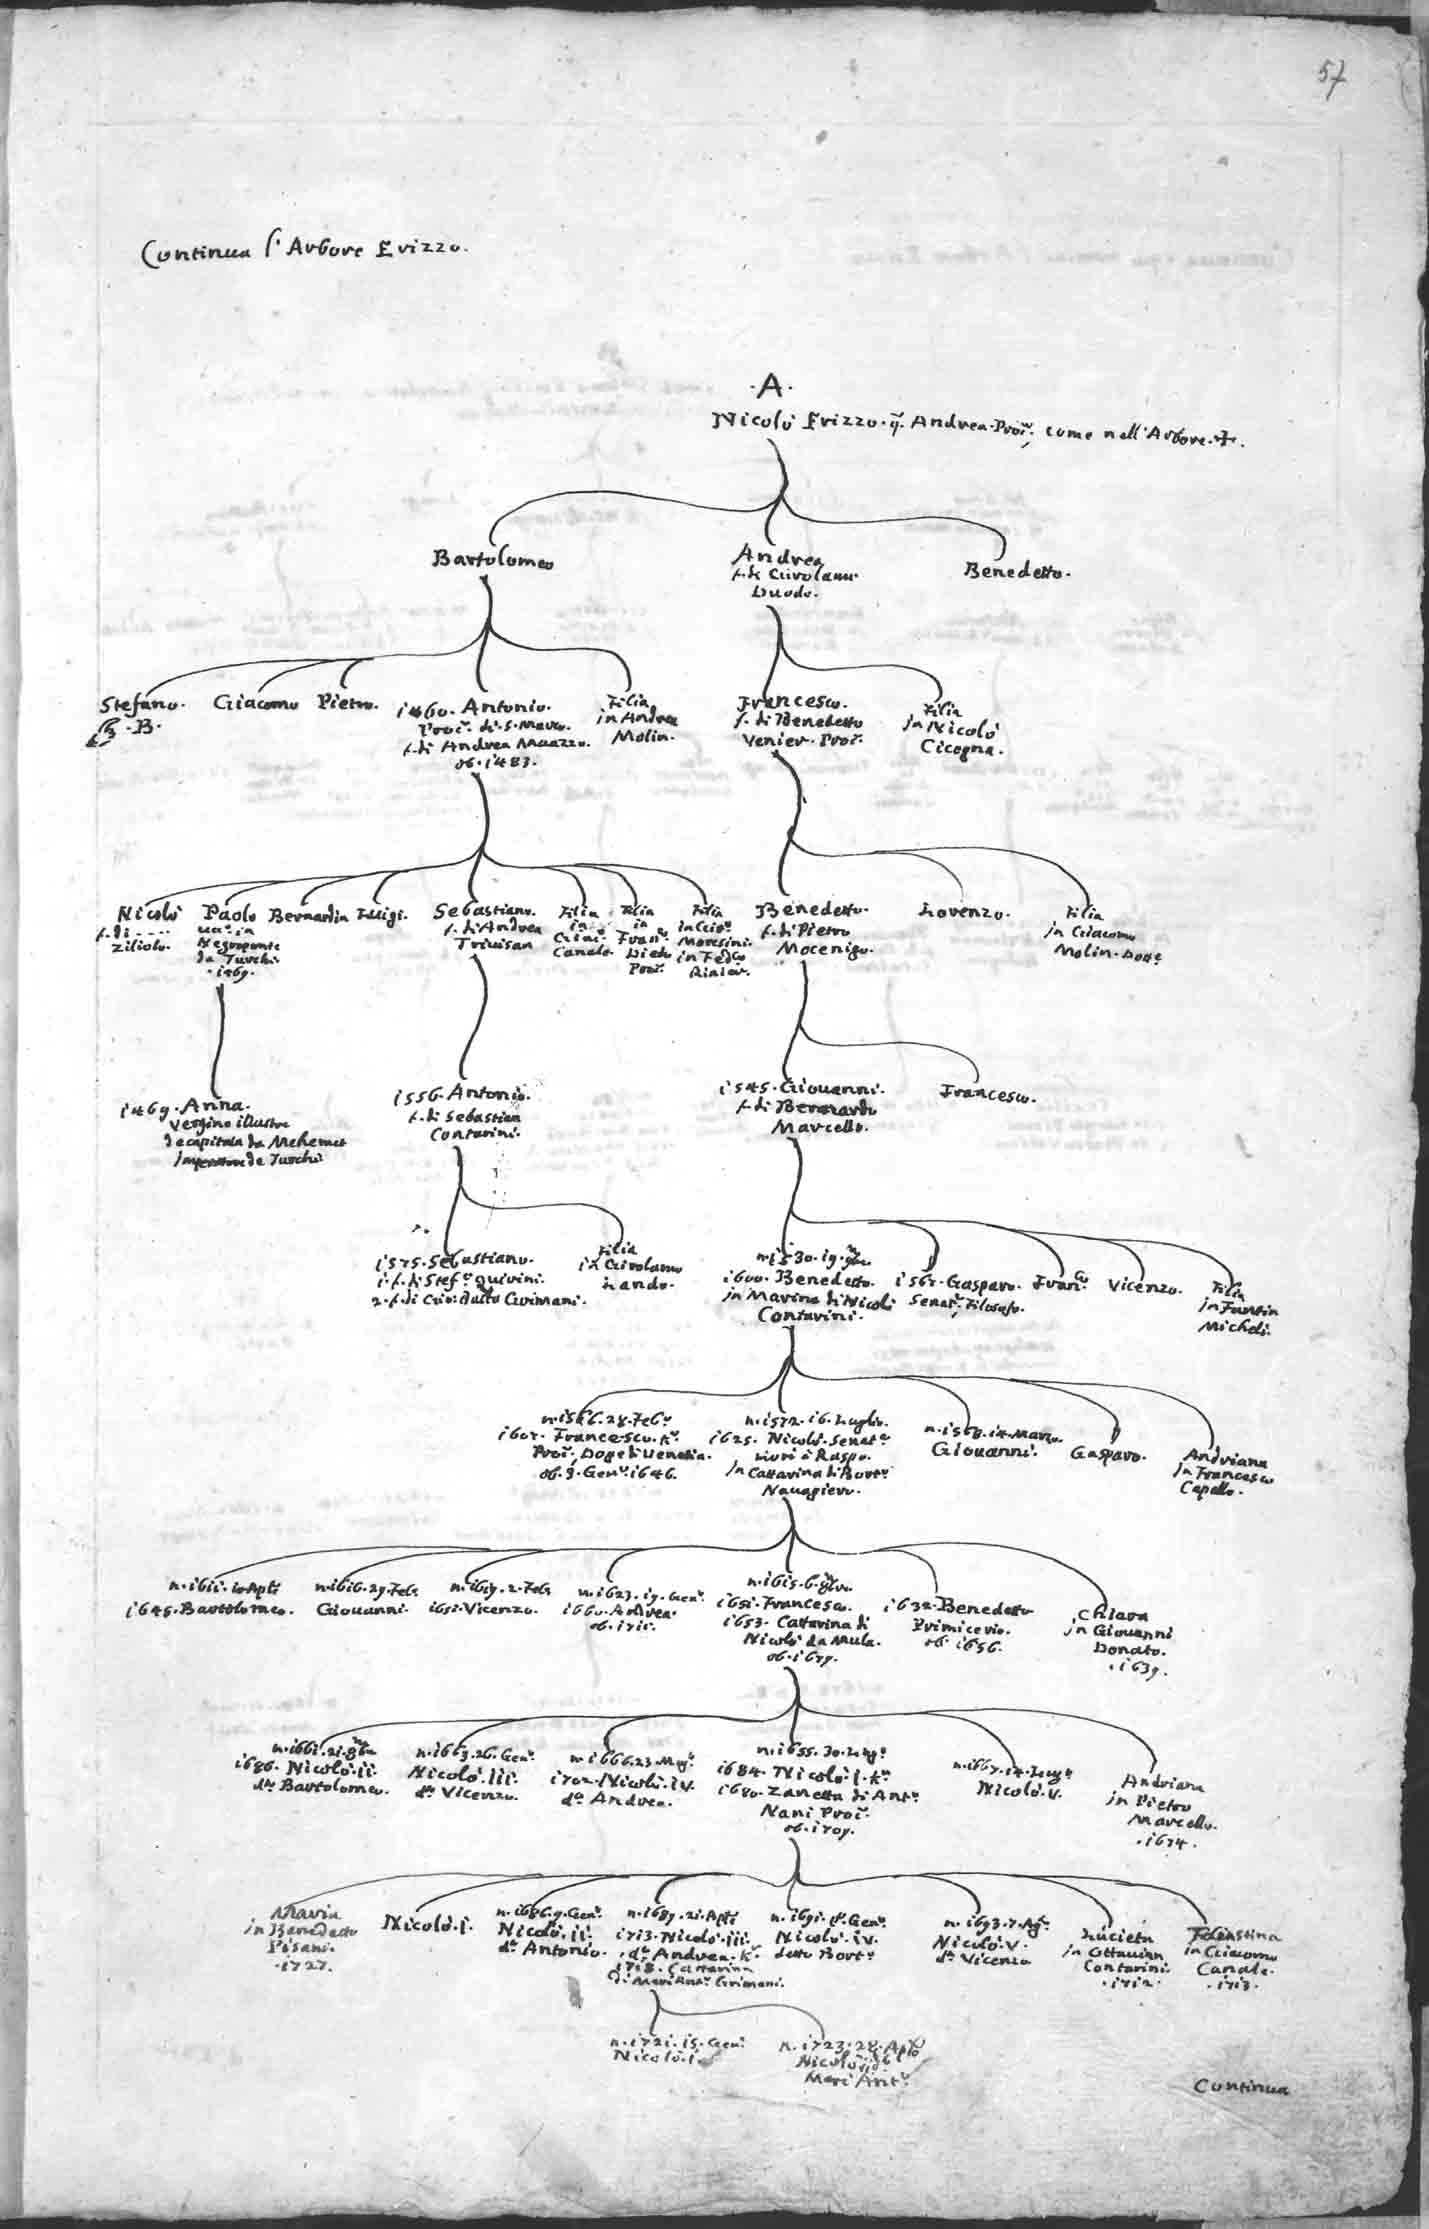 57
Continua l'Arbore Erizzo.
.A.
Nicolò Erizzo. q. Andrea. Procr. come nell'Arbore. +.
Bartolomeo
Andrea
f. di Girolamo
Duodo.
Benedetto.
Stefano.
B.
Giacomo
Pietro.
1460. Antonio.
Procr. di. S. Marco.
f. di Andrea Muazzo.
ob. 1483.
Filia
in Andrea
Molin.
Francesco.
f. di Benedetto
Venier. Procr.
Filia
in Nicolò
Cicogna.
Nicolò
f. di ....
Ziliolo.
Paolo
in
Negroponte
da Turchi
.1469.
Bernardin
Alvigi.
Sebastiano.
f. di Andrea
Trivisan
Filia
in
Giac.
Canale.
Filia
in
Franc.
Diedo
Procr.
Filia
in
Moresini.
in Fedco
Rinier.
Benedetto.
f. di Pietro
Mocenigo.
Lorenzo.
Filia
in Giacomo
Molin. Dotte
1469. Anna.
Vergine illustre
decapitata da Mehemet
Imperatore de Turchi
1556. Antonio.
f. di Sebastian
Contarini.
1545. Giovanni.
f. di Bernardo
Marcello.
Francesco.
1575. Sebastiano.
1. f. di Stefo. Quirini.
2. f. di Gio: Batta Grimani.
Filia
in Girolamo
Lando.
n. 1530. 19. 9bre
1600. Benedetto.
in Marina di Nicolò
Contarini.
Gasparo.
Senatr. Filosofo.
Franco
Vicenzo.
Filia
in Fantin
Micheli.
n. 1566. 28. Febr.
Francesco. Kr.
Procr. Doge di Venetia.
ob. 3. Genr. 1646.
n. 1572. 16. Luglio.
1625. Nicolò. Senatr.
morì à Raspo.
in Cattarina di Borto
Navagiero.
Marzo.
Giovanni.
Gasparo.
Andriana
in Francesco
Capello.
n. 1611. 10 Aple
1645. Bartolomeo.
n. 1616. 29. Feb.
Giovanni.
n. 1619. 2. Feb.
1651. Vicenzo.
n. 1623. 19. Genr.
1660. Andrea.
ob. 1711.
n. 1615. 6. 8bre
1651. Francesco.
1653. Cattarina di
Nicolò da Mula.
ob. 1679.
1632. Benedetto
Primicerio.
ob. 1656.
Chiara
in Giovanni
Donato.
.1639.
n. 1661. 21. 8bre
1686. Nicolò. ii.
do. Bartolomeo.
n. 1663. 26. Genr.
Nicolò. iii.
do. Vicenzo.
n. 1666. 23. Mag.
1702. Nicolò. iv.
do. Andrea.
n. 1655. 30. Lugo
1684. Nicolò. i. Kr.
1680. Zanetta di Anto
Nani Procr.
ob. 1709.
n. 1667. 14. Lugo
Nicolò. v.
Andriana
in Pietro
Marcello.
.1674.
Maria
in Benedetto
Pisani.
.1727.
Nicolò. i.
n. 1686. 9. Genr.
Nicolò. ii.
do. Antonio.
n. 1689. 21. Aple
1713. Nicolò. iii.
do. Andrea. Kr.
1718. Cattarina
di Marc'Anto. Grimani.
Genr.
Nicolò. iv.
detto Borto
n. 1693. 7. Ago.
Nicolò. v.
do. Vicenzo
Lucieta
in Ottavian
Contarini.
.1712.
Faustina
in Giacomo
Canale.
.1713.
n. 1721. 15. Genr.
Nicolò. i.
n. 1723. 28. Aple
Nicolò
Marc'Anto
Continua